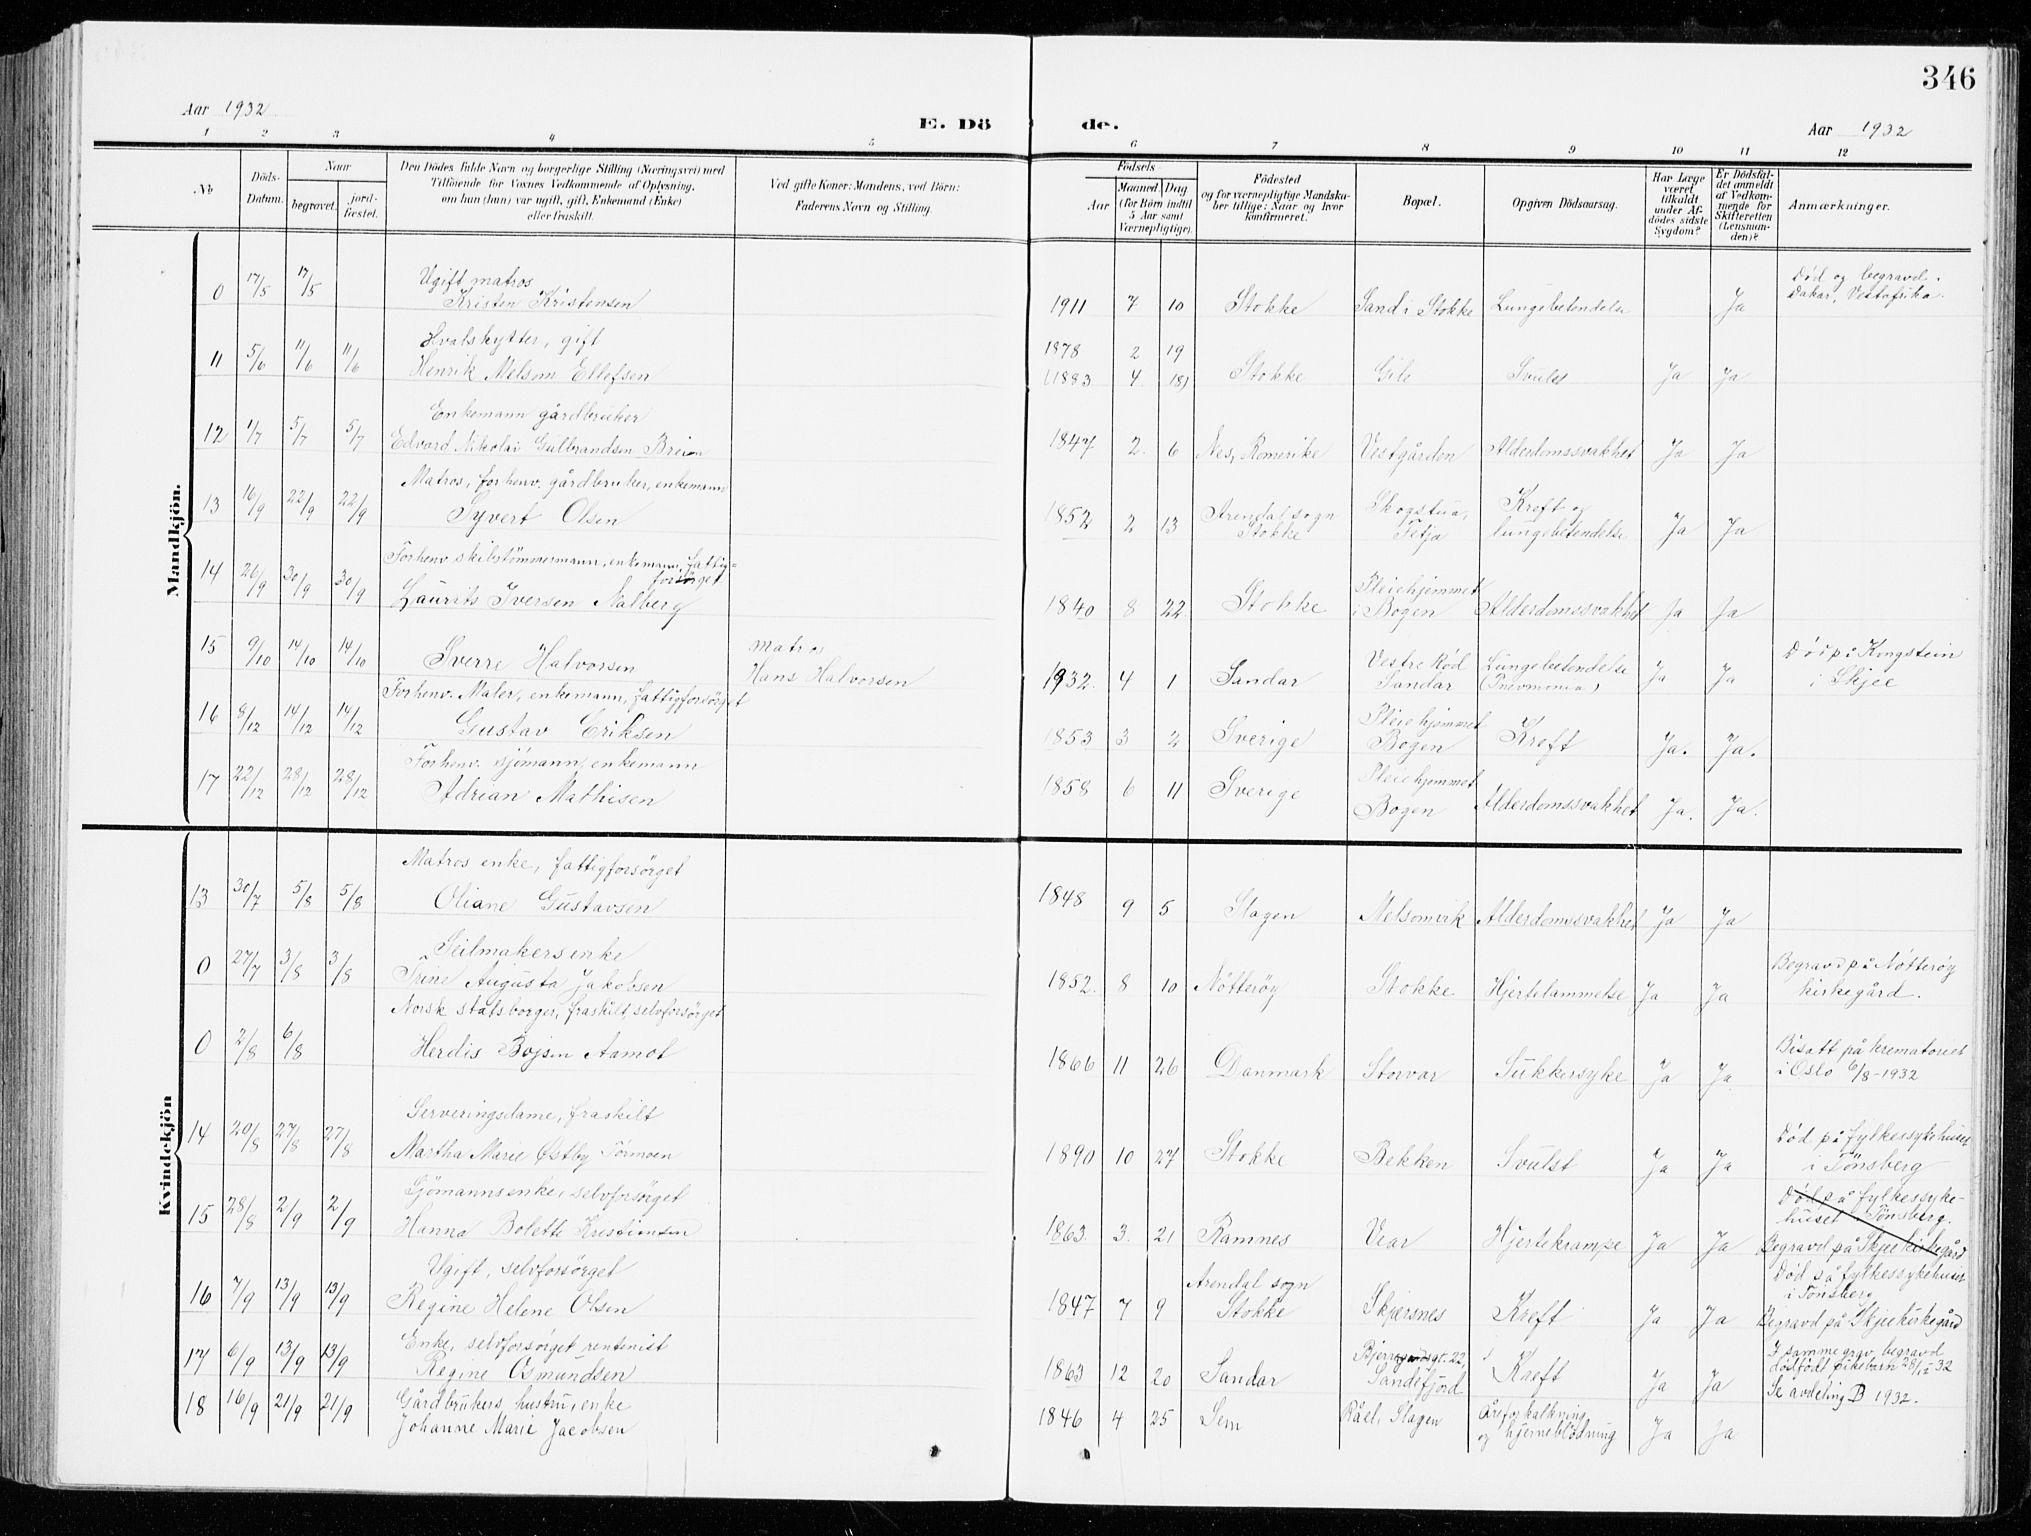 346
Aar 1932
E. Dö de.
Aar 1932
1 2 3 4 5 6 7 8 9 10 11 12
No
Döds-Datum.
Naar
begravet.
jord-fæstet.
Den Dödes fulde Navn og borgerlige Stilling (Næringsvei) med
Tilföiende for Voxnes Vedkommende af Oplysning,
om han (hun) var ugift, gift, Enkemand (Enke)
eller fraskilt.
Ved gifte Koner: Mandens, ved Börn:
Faderens Navn og Stilling.
Födsels
Aar
Maaned. Dag
(for Börn indtil
5 Aar samt
Værnepligtige).
Födested
og for værnepligtige Mandska-
ber tillige: Naar og hvor
konfirmeret.
Bopæl.
Opgiven Dödsaarsag.
Har Læge
været
tilkaldt
under Af-
dödes sidste
Sygdom?
Er Dödsfal-
det anmeldt
af Vedkom-
mende for
Skifteretten
(Lensman-
den)?
Anmærkninger.
Mandkjön.
0 17/5 17/5 Ugift matros
Kristen Kristensen
1911 7 10 Stokke Sand i Stokke Lungebetendelse Ja
Död og begravd i
Dakar, Vestafrika.
11 5/6 11/6 11/6 Hvalskytter, gift
Henrik Melsom Ellefsen
1878 2 19
(1883 4 18) Stokke Gile Svulst Ja Ja
12 1/7 5/7 5/7 Enkemann gårdbruker
Edvard Nikolai Gulbrandsen Breien
1847 2 6 Nes, Romerike Vestgården Alderdomssvakhet Ja Ja
13 16/9 22/9 22/9 Matros, forhenv. gårdbruker, enkemann
Syvert Olsen
1852 2 13 Arendal sogn
Stokke Skogstua, Fetja Kreft og
lungebetendelse Ja Ja
14 26/9 30/9 30/9 Forhenv. skibstömmermann, enkemann, fattig=
forsörget
Laurits Iversen Nalberg
1840 8 22 Stokke Pleiehjemmet
i Bogen Alderdomssvakhet Ja Ja
15 9/10 14/10 14/10 Sverre Halvorsen
Matros
Hans Halvorsen
1932 4 1 Sandar Vestre Röd
Sandar Lungebetendelse
(Pnevmonia) Ja Ja
Död på Kongstein
i Skjee
16 8/12 14/12 14/12 Forhenv. Maler, enkemann, fattigforsörget
Gustav Eriksen
1853 3 2 Sverige Pleiehjemmet
Bogen Kreft Ja. Ja.
17 22/12 28/12 28/12 Forhenv. sjömann, enkemann
Adrian Mathisen
1858 6 11 Sverige Pleiehjemmet
Bogen Alderdomssvakhet Ja. Ja.
Kvindekjön
13 30/7 5/8 5/8 Matros enke, fattigforsörget
Oliane Gustavsen
1848 9 5 Slagen Melsomvik Alderdomssvakhet Ja Ja
0 27/7 3/8 3/8 Seilmakersenke
Trine Augusta Jakobsen
1852 8 10 Nötteröy Stokke Hjertelammelse Ja Ja
Begravd på Nötteröy
kirkegård.
0 2/8 6/8 Norsk statsborger, fraskilt, selvforsörget
Herdis Bojsen Aamot
1866 11 26 Danmark Storvar Sukkersyke Ja Ja
Bisatt på krematoriet
i Oslo 6/8-1932
14 20/8 27/8 27/8 Serveringsdame, fraskilt
Martha Marie Østby Tørmoen
1890 10 27 Stokke Bekken Svulst Ja Ja
Död på fylkessykehuset
i Tönsberg
15 28/8 2/9 2/9 Sjömannsenke, selvforsörget
Hanna Bolette Kristiansen
1863 3. 21 Ramnes Vear Hjertekrampe Ja Ja
Död på fylkessyke-
huset i Tönsberg.
Begravd på Skjee kirkegård
16 7/9 13/9 13/9 Ugift, selvforsörget
Regine Helene Olsen
1847 7 9 Arendal sogn
Stokke Skjersnes Kreft Ja Ja
Död på fylkessykehuset
i Tönsberg
Begravd på Skjee kirkegård
17 6/9 13/9 13/9 Enke, selvforsörget rentenist
Regine Osmundsen
1863 12 20 Sandar Bjerggt. 22,
Sandefjord Kreft Ja Ja
I samme grav, begravd
dödfödt pikebarn 28/12 32
Se avdeling B 1932.
18 16/9 21/9 21/9 Gårdbrukers hustru, enke
Johanne Marie Jacobsen
1846 4 25 Sem Råel, Slagen Åreforkalkning
og hjerneblödning Ja Ja